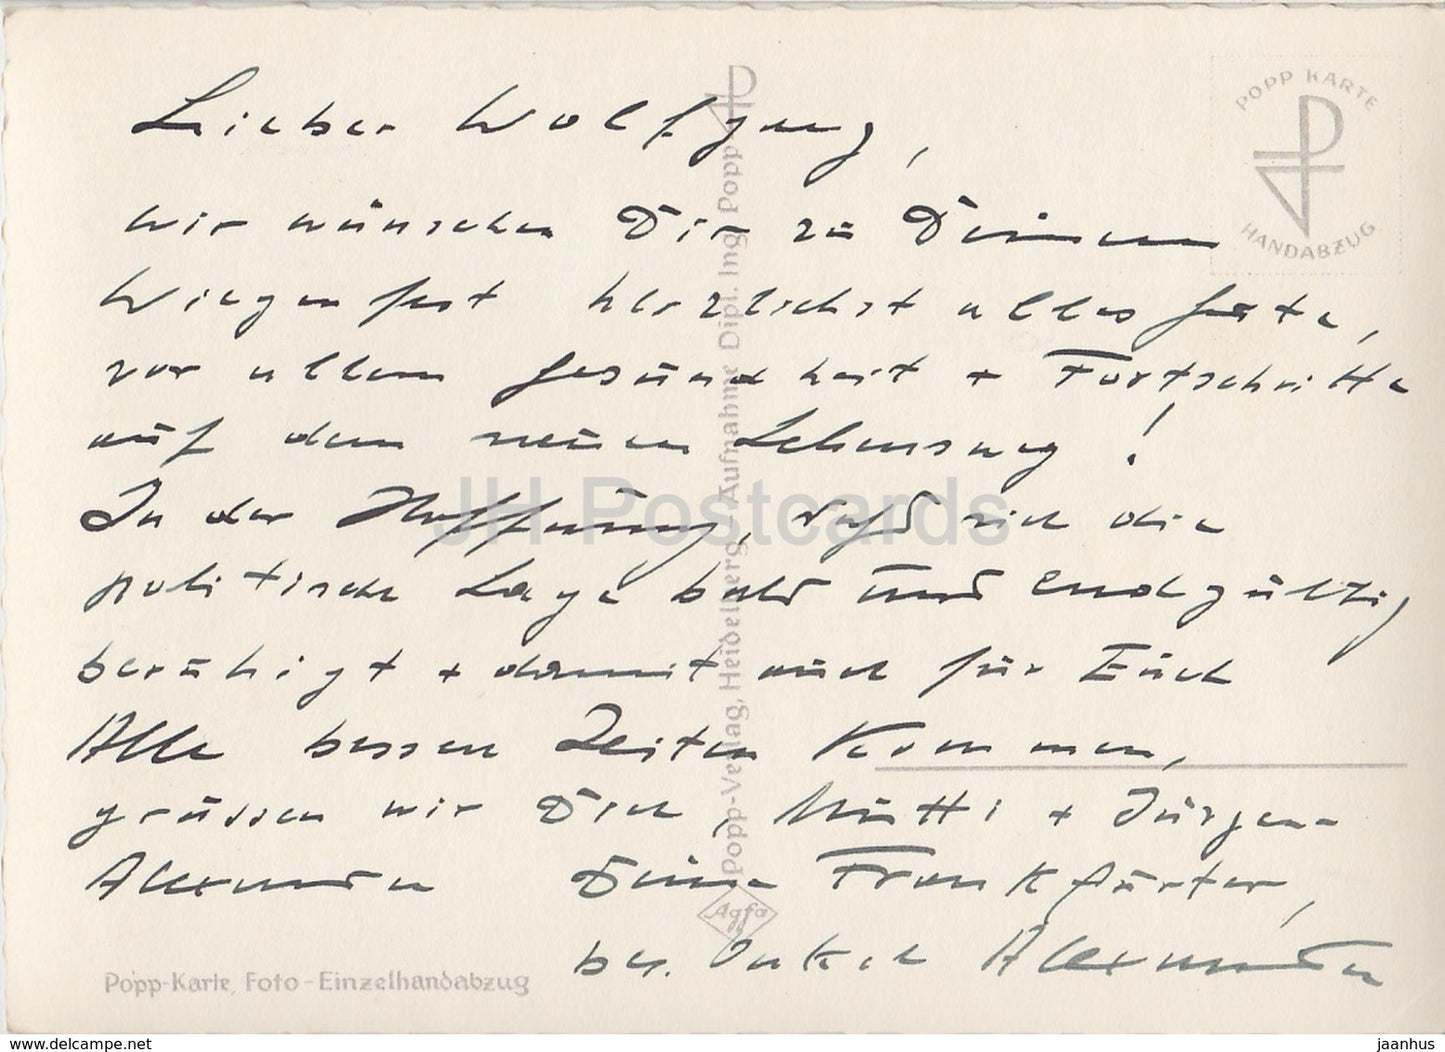 Lieber Wolfgang,
wir wünschen Dir zu Deinem
Wiegenfest herzlichst alles Gute,
vor allem Gesundheit + Fortschritte
auf dem neuen Lebensweg!
In der Hoffnung, daß sich die
politische Lage bald und endgültig
beruhigt + damit auch für Euch
Alle bessere Zeiten kommen,
grüssen wir Dich, Mutti + Jürgen
Alexander Deine Frankfurter,
bes. Onkel Alexander
POPP KARTE
HANDABZUG
Popp-Verlag, Heidelberg - Aufnahme Dipl. Ing. Popp
Agfa
Popp-Karte, Foto-Einzelhandabzug
JH Postcards
www.delcampe.net
jaanhus